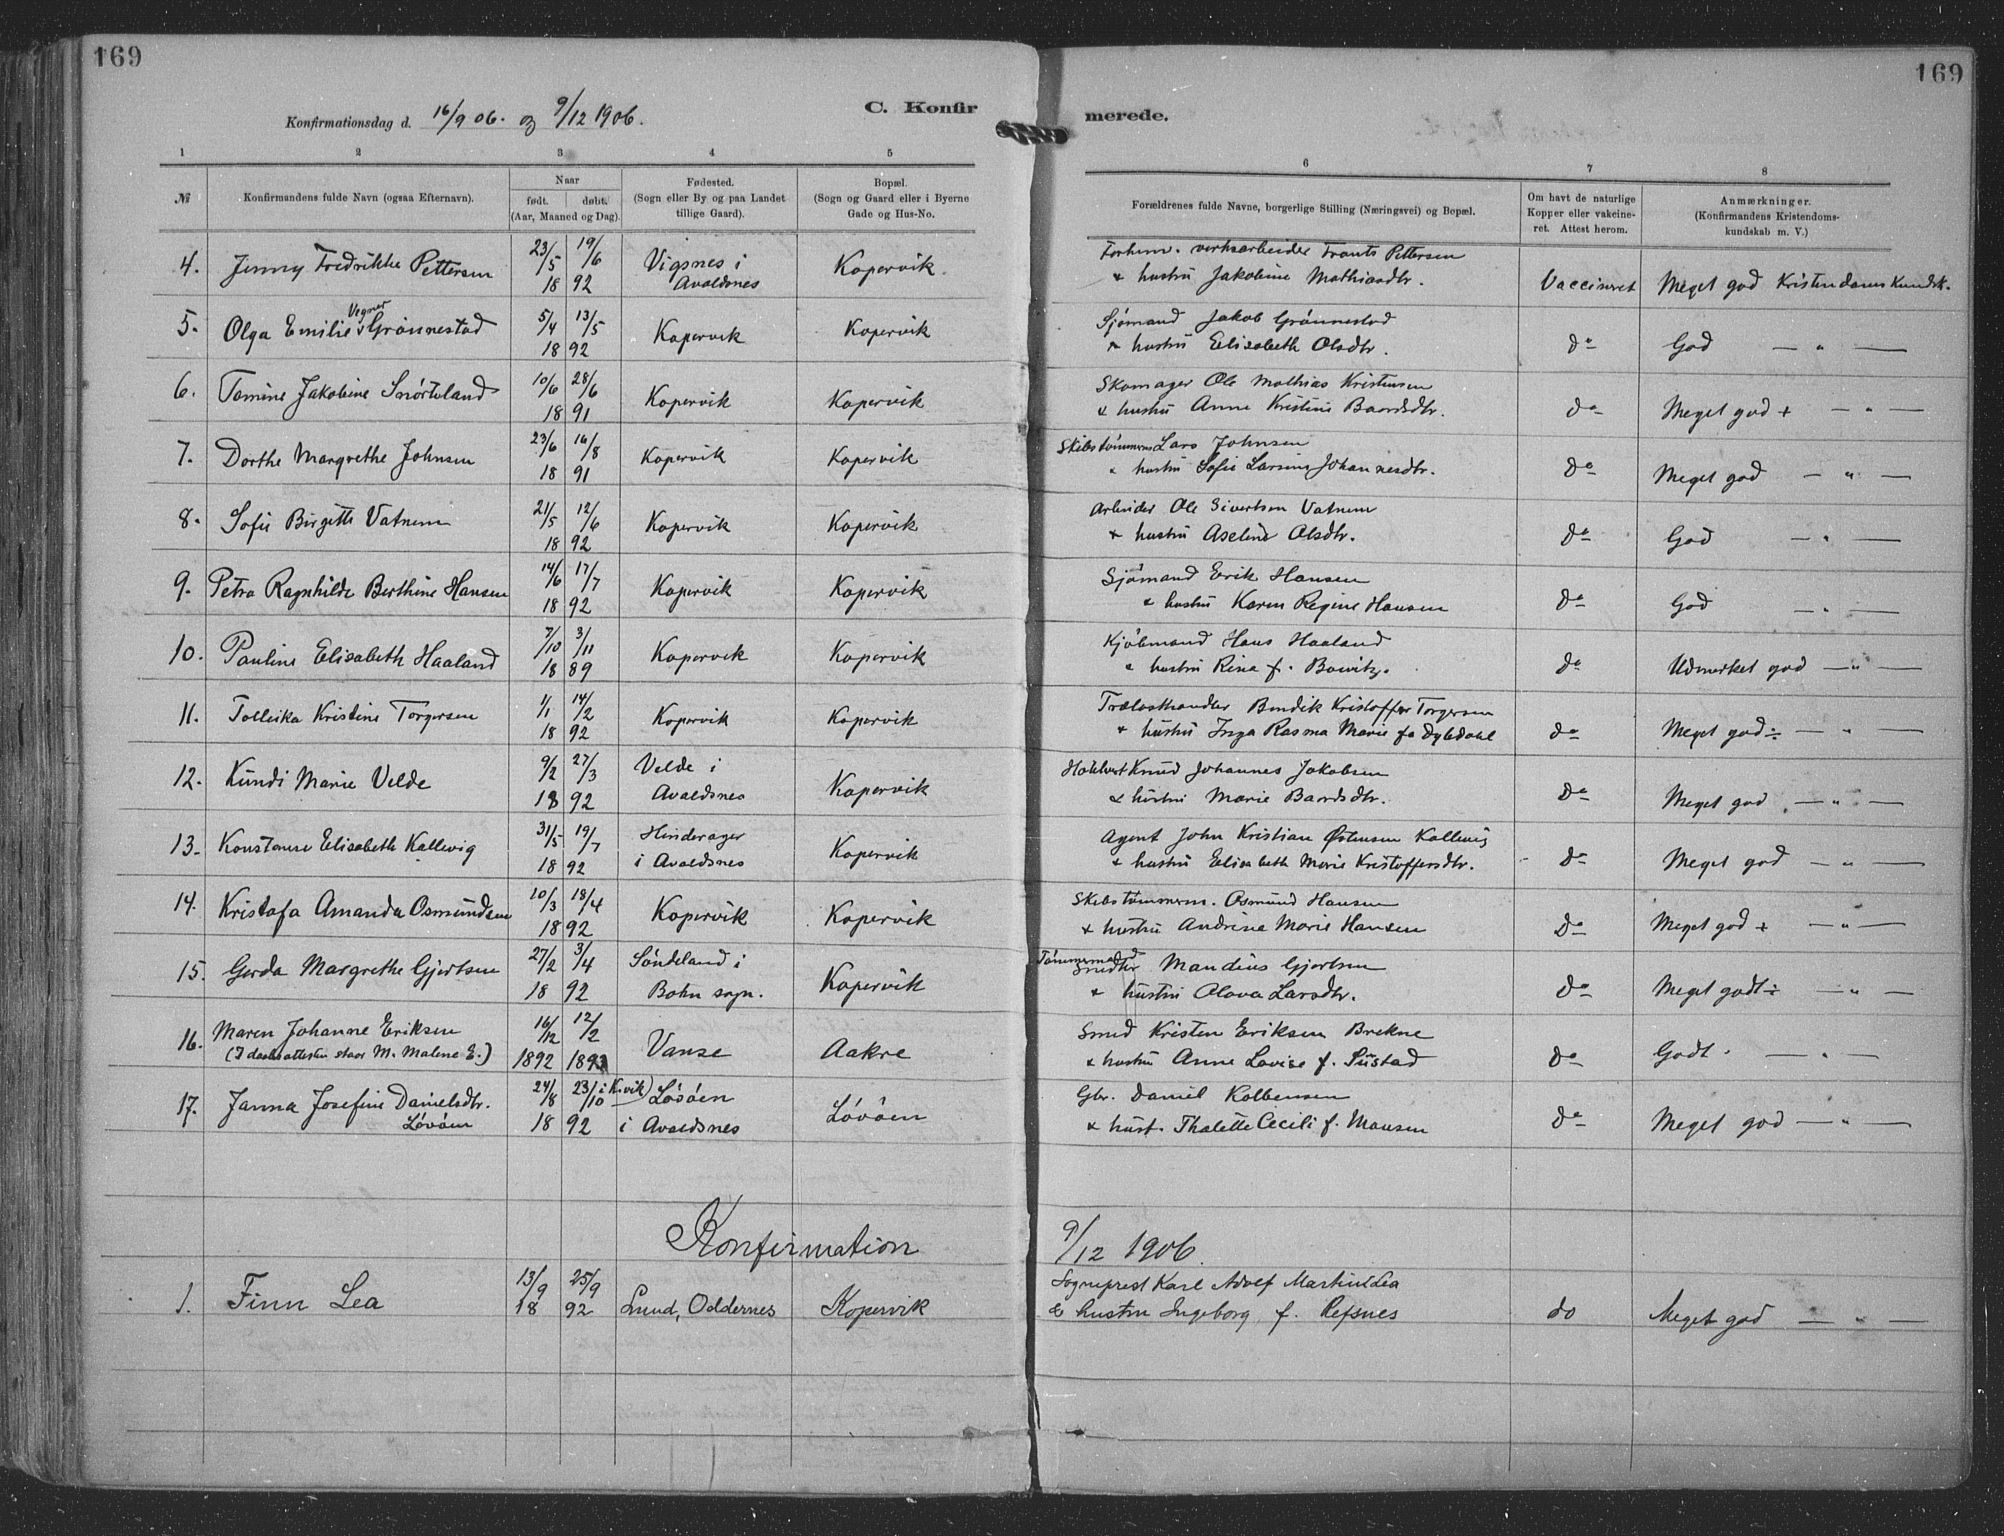 169
169
Konfirmationsdag d. 16/9 06. og 9/12 1906.
C. Konfirmerede.
1 2 3 4 5 6 7 8
№
Konfirmandens fulde Navn (ogsaa Efternavn).
Naar
født. døbt.
(Aar, Maaned og Dag).
Fødested.
(Sogn eller By og paa Landet
tillige Gaard).
Bopæl.
(Sogn og Gaard eller i Byerne
Gade og Hus-No.
Forældrenes fulde Navne, borgerlige Stilling (Næringsvei) og Bopæl.
Om havt de naturlige
Kopper eller vakcine-
ret. Attest herom.
Anmærkninger.
(Konfirmandens Kristendoms-
kundskab m. V.)
4. Jenny Fredrikke Pettersen 23/5 19/6 1892 Vigsnes i Avaldsnes Kopervik. Forhenv. verksarbeider Frants Pettersen
& hustru Jakobine Mathiasdtr. Vaccineret Meget god Kristendomskundsk.
5. Olga Emilie Vegner Grønnestad 5/4 13/5 1892 Kopervik Kopervik Sjømand Jakob Grønnestad
& hustru Elisabeth Olsdtr. do God — " —
6. Tomine Jakobine Snørteland 10/6 28/6 1891 Kopervik Kopervik Skomager Ole Mathias Kristensen
& hustru Anne Kristine Baardsdtr. do Meget god + — " —
7. Dorthe Margrethe Johnsen 23/6 16/8 1891 Kopervik Kopervik Skibstømmerm Lars Johnsen
& hustru Sofie Larsine Johannesdtr. do Meget god — " —
8. Sofie Birgitte Vatnem 21/5 12/6 1892 Kopervik Kopervik Arbeider Ole Sivertsen Vatnem
& hustru Aseline Olsdtr. do God — " —
9. Petra Ragnhilde Berthine Hansen 14/6 17/7 1892 Kopervik Kopervik Sjømand Erik Hansen
& hustru Karen Regine Hansen do God — " —
10. Pauline Elisabeth Haaland 7/10 3/11 1889 Kopervik Kopervik Kjøbmand Hans Haaland
& hustru Rina f. Bowitz. do Udmerket god — " —
11. Tolliska Kristine Torgersen 1/1 14/2 1892 Kopervik Kopervik Trælasthandler Bendik Kristoffer Torgersen
& hustru Inga Rasma Marie fø Dybdahl do Meget god ÷ — " —
12. Kundi Marie Velde 9/2 27/3 1892 Velde i Avaldsnes Kopervik Knud Johannes Jakobsen
& hustru Marie Baardsdtr. do Meget god — " —
13. Konstanse Elisabeth Kallevig 31/5 19/7 1892 Hinderager i Avaldsnes Kopervik Agent John Kristian Østensen Kallevig
& hustru Elisabeth Marie Kristoffersdtr. do Meget god — " —
14. Kristofa Amanda Osmundsen 20/3 18/4 1892 Kopervik Kopervik Skibstømmerm. Osmund Hansen
& hustru Andrine Marie Hansen do Meget god + — " —
15. Gerda Margrethe Gjertsen 27/2 3/4 1892 Søndeland i Bokn sogn. Kopervik Tømmermand Mandius Gjertsen
& hustru Olava Larsdtr. do Meget godt ÷ — " —
16. Maren Johanne Eriksen
(I daabsattesten staar M. Malene E.) 16/12 1892 12/2 1893 Vanse Aakre Smed Kristen Eriksen Brekne
& hustru Anne Lovise f. Sustad do Godt. — " —
17. Janna Josefine Danielsdtr. Løvøen 24/8 23/10 i K.vik) 1892 Løvøen i Avaldsnes Løvøen Gbr. Daniel Kolbensen
& hust. Thalette Cecili f. Monsen do Meget god — " —
Konfirmation 9/12 1906.
1. Finn Lea 13/9 25/9 1892 Lund, Oddernes Kopervik Sogneprest Karl Adolf Martin Lea
& hustru Ingeborg f. Refsnes do Meget god — " —